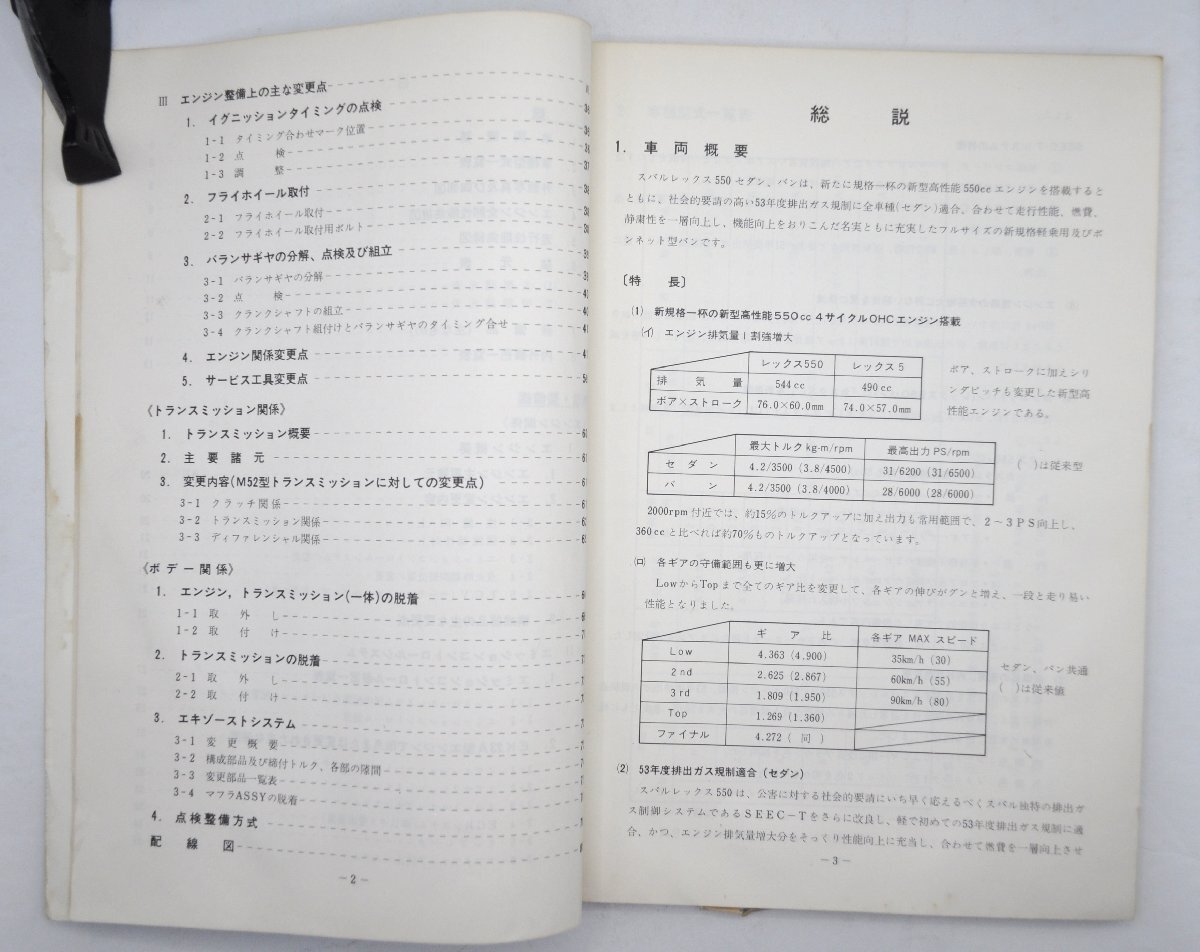 III エンジン整備上の主な変更点
1. イグニッションタイミングの点検
1-1 タイミング合わせマーク位置
1-2 点検
1-3 調整
2. フライホイール取付
2-1 フライホイール取付
2-2 フライホイール取付用ボルト
3. バランサギヤの分解、点検及び組立
3-1 バランサギヤの分解
3-2 点検
3-3 クランクシャフトの組立
3-4 クランクシャフト組付けとバランサギヤのタイミング合せ
4. エンジン関係変更点
5. サービス工具変更点
《トランスミッション関係》
1. トランスミッション概要
2. 主要諸元
3. 変更内容(M52型トランスミッションに対しての変更点)
3-1 クラッチ関係
3-2 トランスミッション関係
3-3 ディファレンシャル関係
《ボデー関係》
1. エンジン,トランスミッション(一体)の脱着
1-1 取外し
1-2 取付け
2. トランスミッションの脱着
2-1 取外し
2-2 取付け
3. エキゾーストシステム
3-1 変更概要
3-2 構成部品及び締付トルク、各部の隙間
3-3 変更部品一覧表
3-4 マフラASSYの脱着
4. 点検整備方式
配線図
-2-
総説
1. 車両概要
スバルレックス550セダン、バンは、新たに規格一杯の新型高性能550ccエンジンを搭載すると
ともに、社会的要請の高い53年度排出ガス規制に全車種(セダン)適合、合わせて走行性能、燃費、
静粛性を一層向上し、機能向上をおりこんだ名実ともに充実したフルサイズの新規格軽乗用及びボ
ンネット型バンです。
〔特長〕
(1) 新規格一杯の新型高性能550cc4サイクルOHCエンジン搭載
(イ) エンジン排気量1割強増大
レックス550 レックス5
排気量 544cc 490cc
ボア×ストローク 76.0×60.0mm 74.0×57.0mm
ボア、ストロークに加えシリ
ンダピッチも変更した新型高
性能エンジンである。
最大トルクkg-m/rpm 最高出力PS/rpm
セダン 4.2/3500 (3.8/4500) 31/6200 (31/6500)
バン 4.2/3500 (3.8/4000) 28/6000 (28/6000)
( )は従来型
2000rpm付近では、約15%のトルクアップに加え出力も常用範囲で、2～3PS向上し、
360ccと比べれば約70%ものトルクアップとなっています。
(ロ) 各ギアの守備範囲も更に増大
LowからTopまで全てのギア比を変更して、各ギアの伸びがグンと増え、一段と走り易い
性能となりました。
ギア比 各ギアMAXスピード
Low 4.363 (4.900) 35km/h (30)
2nd 2.625 (2.867) 60km/h (55)
3rd 1.809 (1.950) 90km/h (80)
Top 1.269 (1.360)
ファイナル 4.272 (同)
セダン、バン共通
( )は従来値
(2) 53年度排出ガス規制適合(セダン)
スバルレックス550は、公害に対する社会的要請にいち早く応えるべくスバル独特の排出ガ
ス制御システムであるSEEC-Tをさらに改良し、軽で初めての53年度排出ガス規制に適
合、かつ、エンジン排気量増大分をそっくり性能向上に充当し、合わせて燃費を一層向上させ
-3-